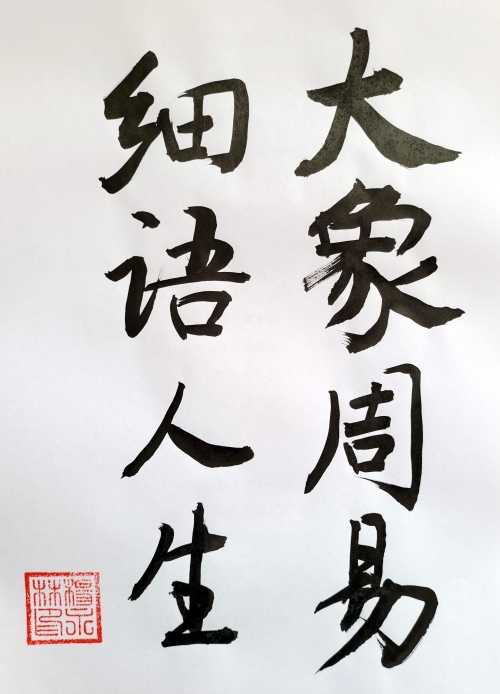 大象周易
细语人生